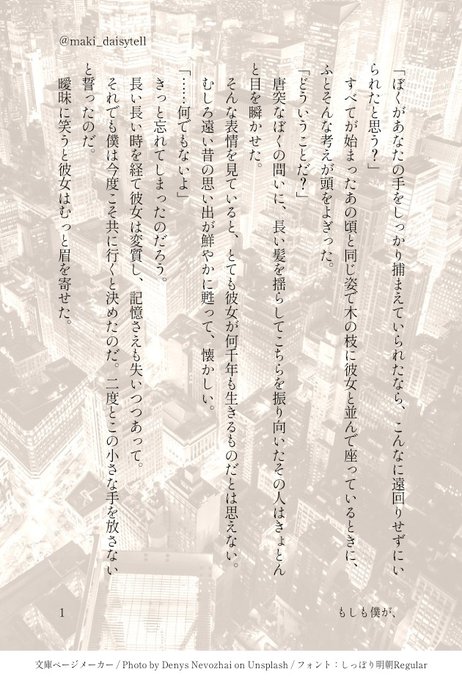 @maki_daisytell
「ぼくがあなたの手をしっかり捕まえていられたなら、こんなに遠回りせずにい
られたと思う？」
すべてが始まったあの頃と同じ姿で木の枝に彼女と並んで座っているときに、
ふとそんな考えが頭をよぎった。
「どういうことだ？」
唐突なぼくの問いに、長い髪を揺らしてこちらを振り向いたその人はきょとん
と目を瞬かせた。
そんな表情を見ていると、とても彼女が何千年も生きるものだとは思えない。
むしろ遠い昔の思い出が鮮やかに甦って、懐かしい。
「……何でもないよ」
きっと忘れてしまったのだろう。
長い長い時を経て彼女は変質し、記憶さえも失いつつあって。
それでも僕は今度こそ共に行くと決めたのだ。二度とこの小さな手を放さない
と誓ったのだ。
曖昧に笑うと彼女はむっと眉を寄せた。
もしも僕が、
1
文庫ページメーカー / Photo by Denys Nevozhai on Unsplash / フォント：しっぽり明朝Regular